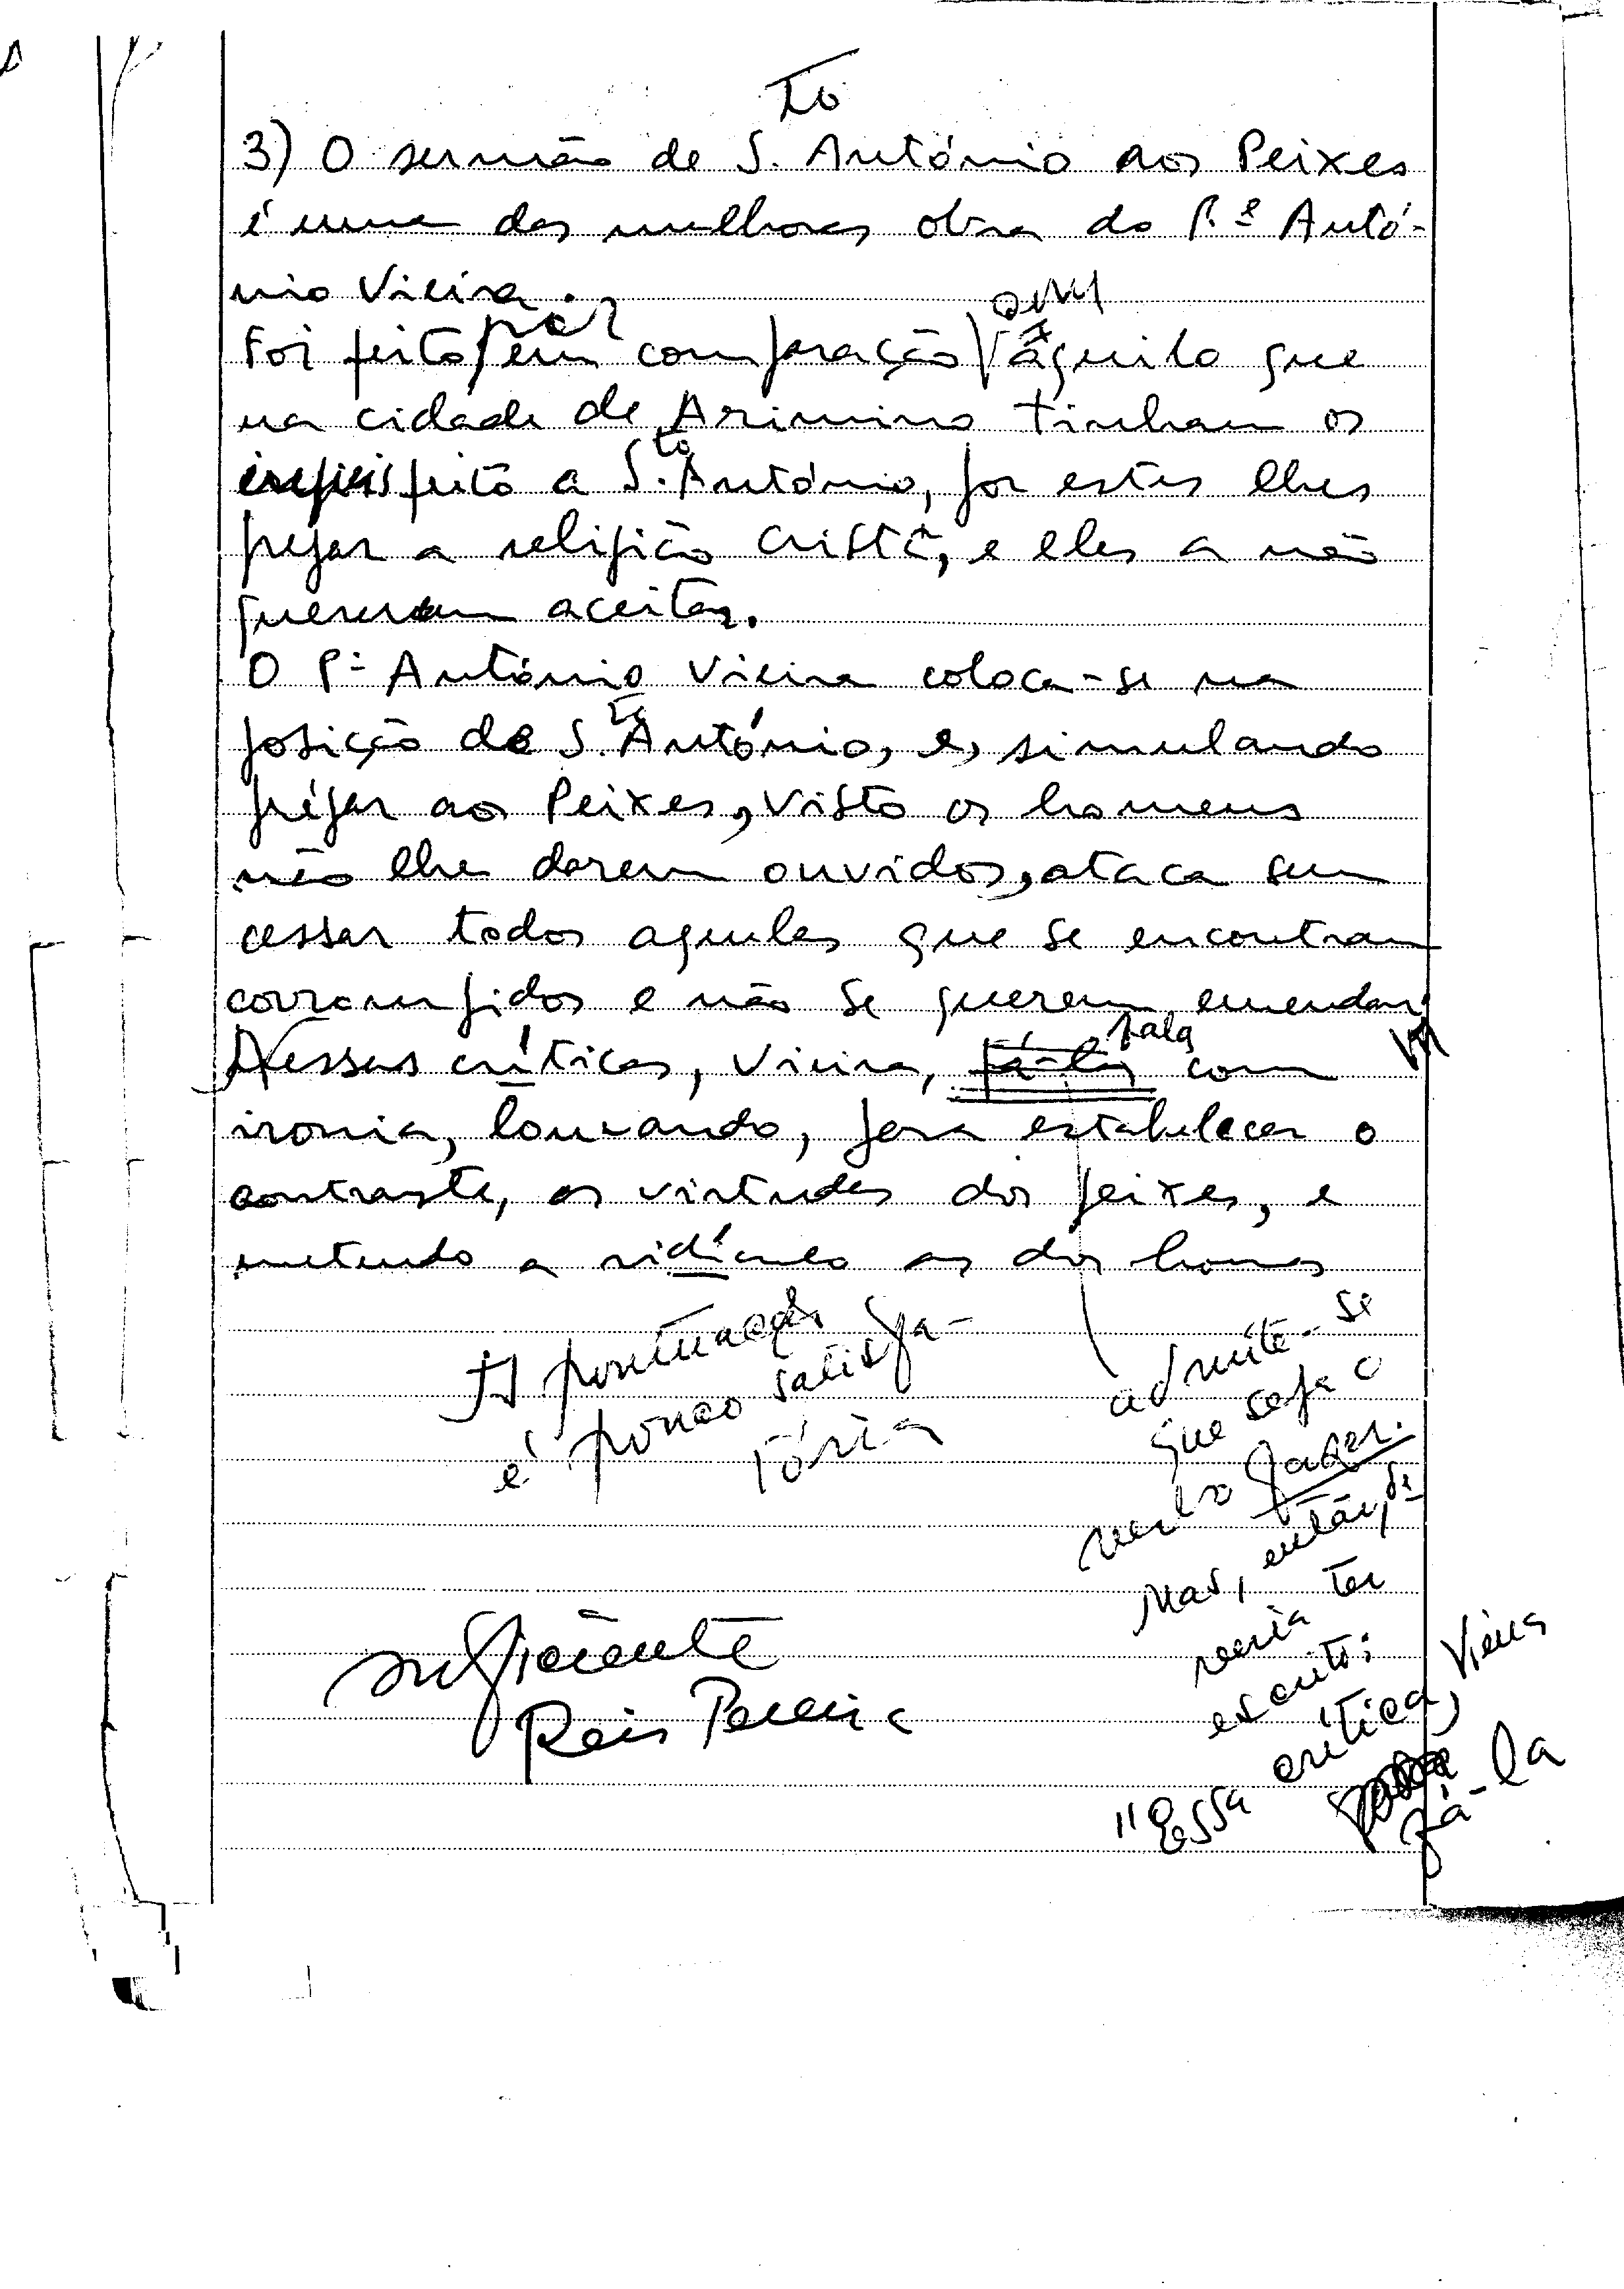 to
3) O sermão de S. António aos Peixes
é uma das melhores obra do P.e Antó-
nio Vieira.
por om
Foi feito em comparação àquilo que
na cidade de Arimino tinham os
infieis feito a S.to António, por estes lhes
pregar a religião cristã, e eles a não
quererem aceitar.
O P.e António Vieira coloca-se na
posição de S.to António, e, simulando
prégar aos Peixes, visto os homens
não lhe darem ouvidos, ataca sem
cessar todos aqueles que se encontram
corrompidos e não se querem emendar.
fala
Nessas críticas, Vieira, fá-las com
ironia, louvando, para estabelecer o
contraste, as virtudes dos peixes, e
metendo a ridículo as dos homens
A pontuação
é pouco satisfa-
tória
admite-se
que seja o
verbo fazer.
Mas, então, de
veria ter
escrito:
"Essa crítica, Vieira
fá-la
suficiente
Reis Pereira